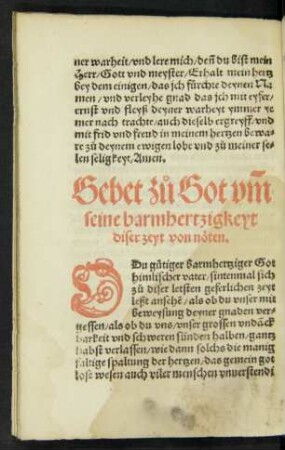 ner warheit/vnd lere mich/deñ du bist mein
Herr/Gott vnd meyster/Erhalt mein hertz
bey dem einigen/das ich fürchte deynen Na
men/vnd verleyhe gnad das ich mit eyser/
ernst vnd fleyß deyner warheyt ymmer ye
mer nach trachte/auch dieselb ergreyff/vnd
mit frid vnd freud in meinem hertzen bewa/
re zů deynem ewigen lobe vnd zů meiner se/
len seligkeyt/Amen.
Gebet zů Got vm̃
seine barmhertzigkeyt
diser zeyt von nöten.
O Du gütiger barmhertziger Got
himlischer vater/sintenmal sich
zů diser letsten geferlichen zeyt
leßt ansehẽ/als ob du vnser mit
beweysung deyner gnaden ver-
gessen/als ob du vns/vnser grossen vndãck
barkeit vnd schweren sünden halben/gantz
habst verlassen/wie dann solchs die manig
faltige spaltung der hertzen/das gemein got
lose wesen auch viler menschen vnuerstendi